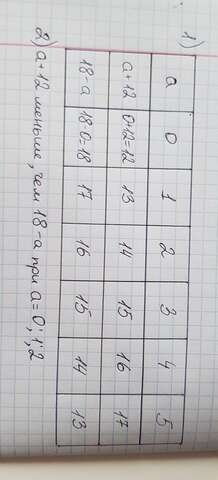 1)
a 0 1 2 3 4 5
a+12 0+12=12 13 14 15 16 17
18-a 18-0=18 17 16 15 14 13
2) a+12 меньше, чем 18-a при a=0; 1; 2